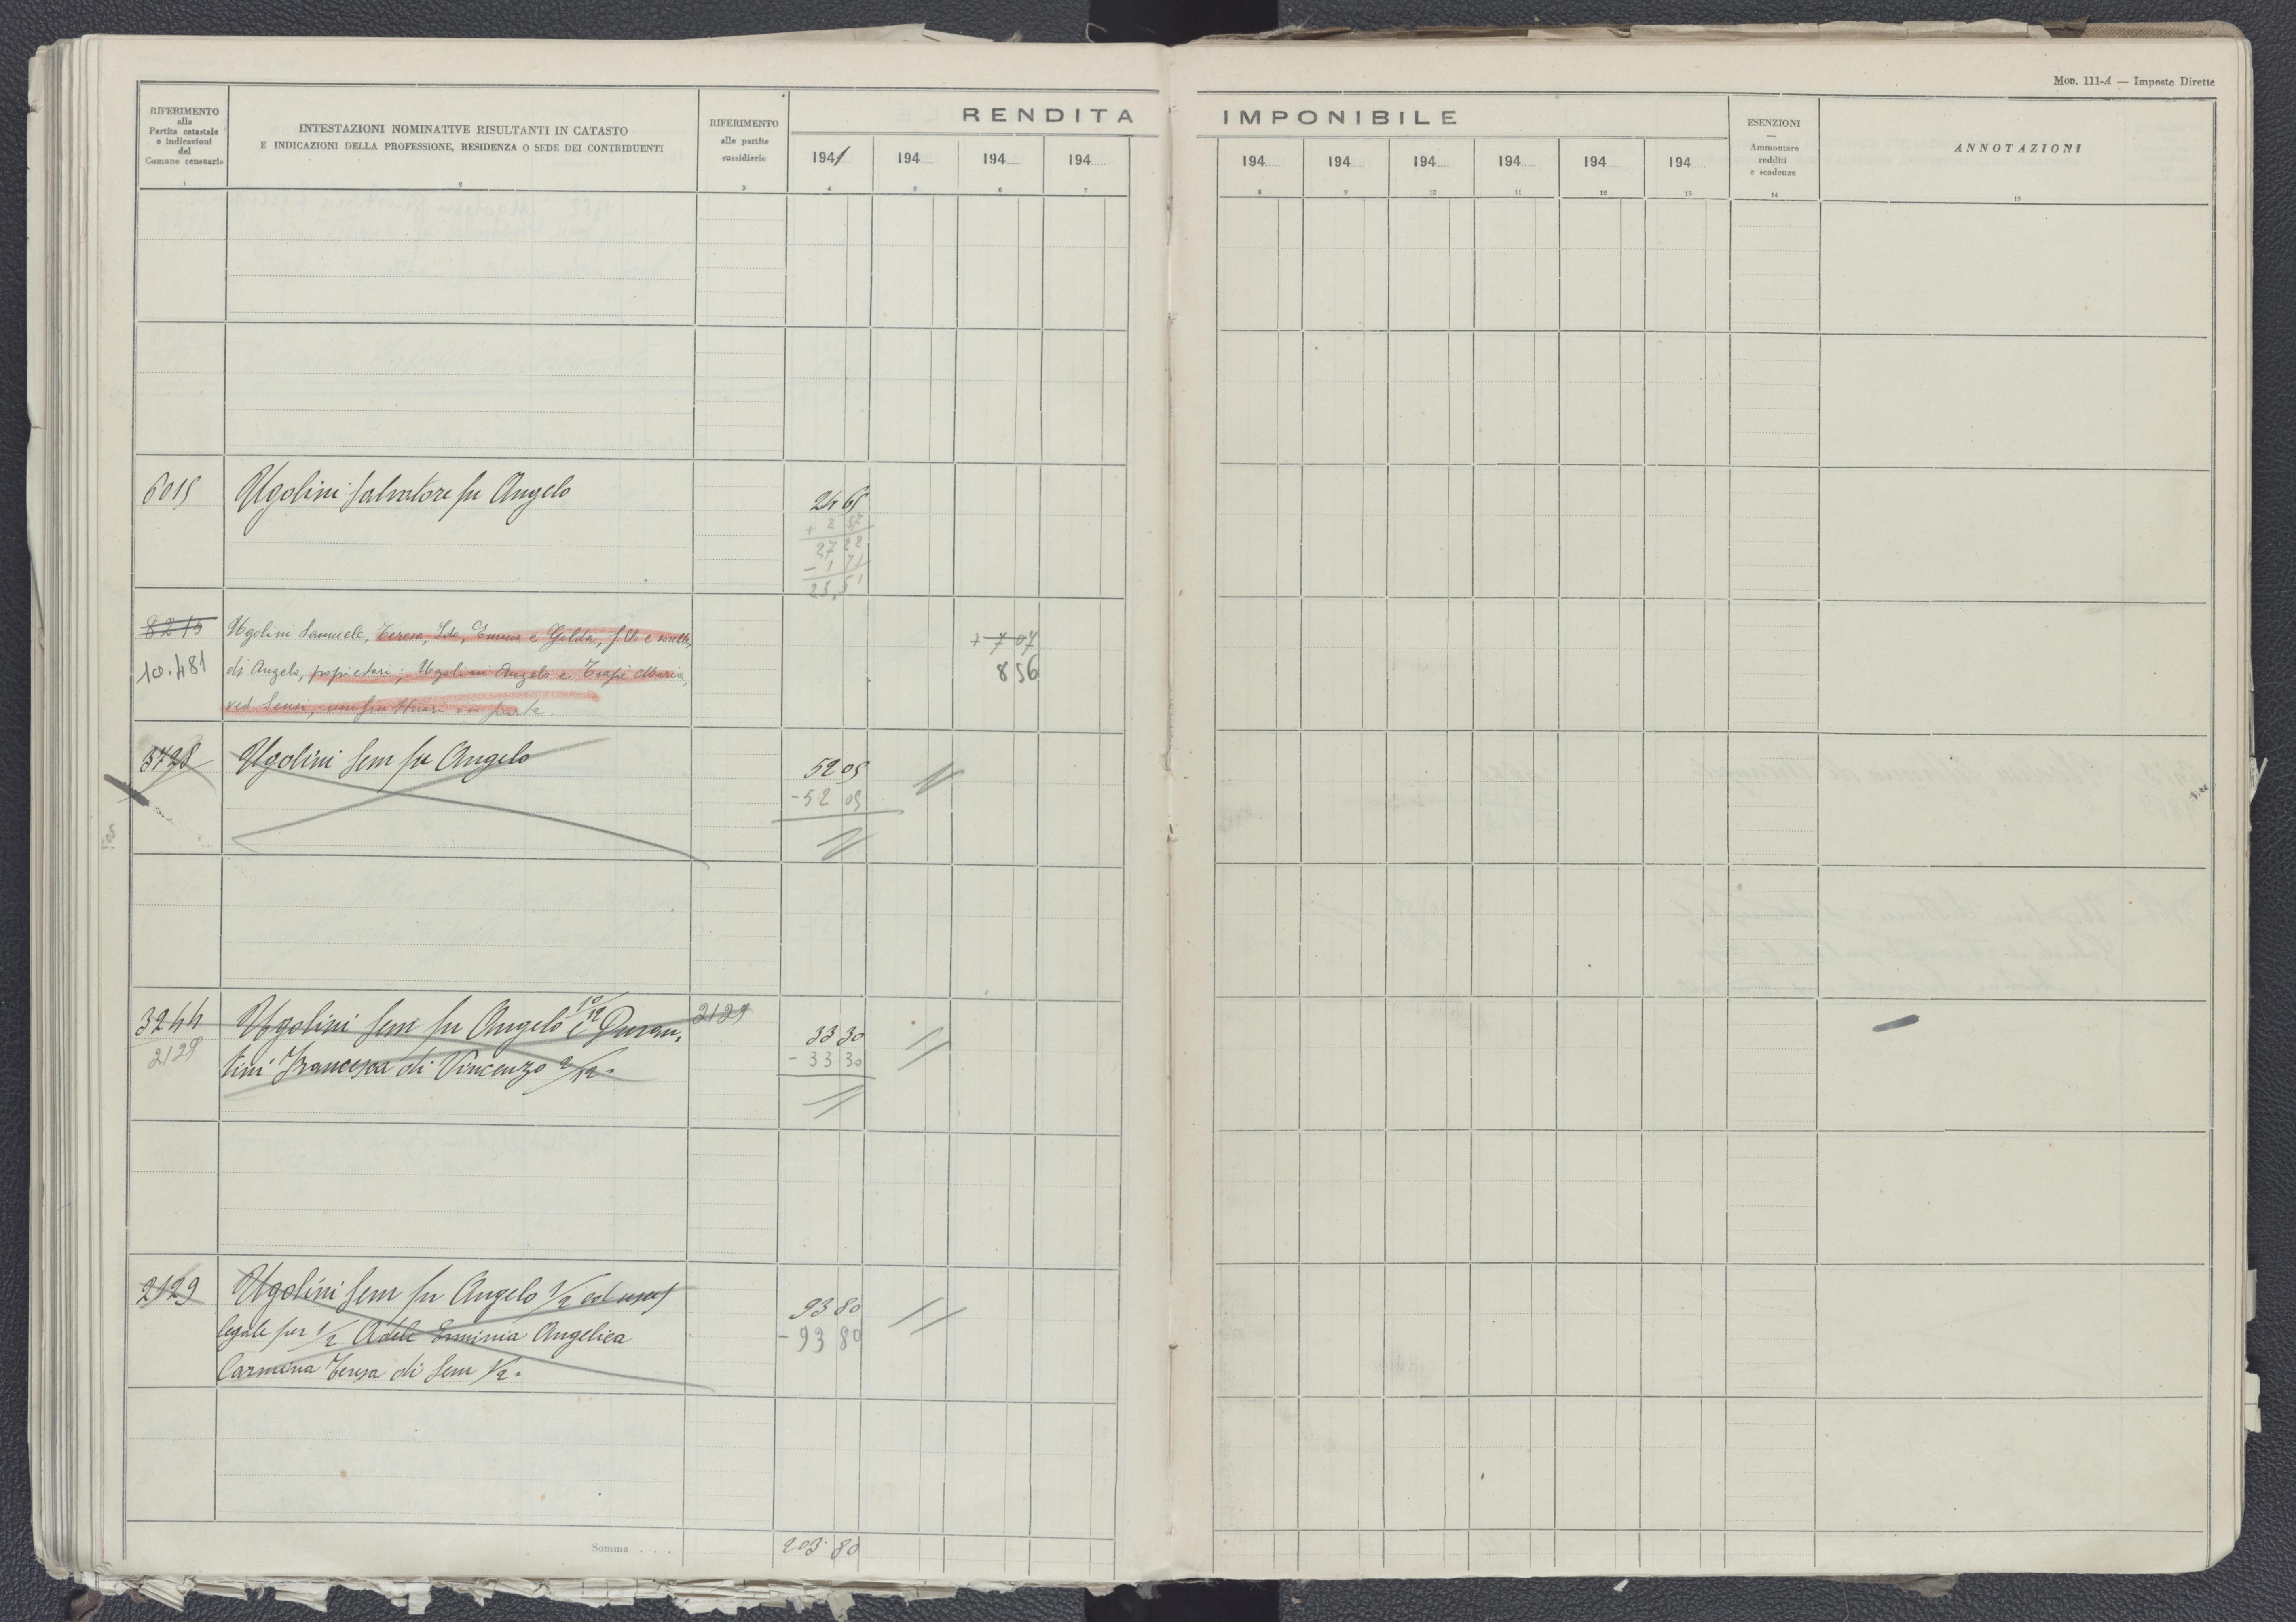 Mod. 111-A — Imposte Dirette
RIFERIMENTO
alla
Partita catastale
e indicazioni
del
Comune censuario
1
INTESTAZIONI NOMINATIVE RISULTANTI IN CATASTO
E INDICAZIONI DELLA PROFESSIONE, RESIDENZA O SEDE DEI CONTRIBUENTI
2
RIFERIMENTO
alle partite
sussidiarie
3
RENDITA IMPONIBILE
1941 194 194 194 194 194 194 194 194 194
4 5 6 7 8 9 10 11 12 13
ESENZIONI
—
Ammontare
redditi
e scadenze
14
ANNOTAZIONI
15
6015 Ugolini Salvatore fu Angelo 24 65
+ 2 57
27 22
- 1 71
25,51
8215 Ugolini Samuele, Teresa, Ida, Emma e Gilda, f.llo e sorelle, + 7 07
10.481 di Angelo, proprietari; Ugolini Angelo e Trapè Maria, 8 56
ved. Sensi, usufruttuari in parte.
3728 Ugolini Sem fu Angelo 52 05 //
- 52 05
//
3244 Ugolini Sem fu Angelo 10/12 e Duran- 2129 33 30 //
2129 tini Francesca di Vincenzo 2/12. - 33 30
//
2129 Ugolini Sem fu Angelo 1/2 ed usuf 93 80 //
legale per 1/2 Adele Erminia Angelica - 93 80
Carmina Teresa di Sem 1/2.
Somma . . . 203 80